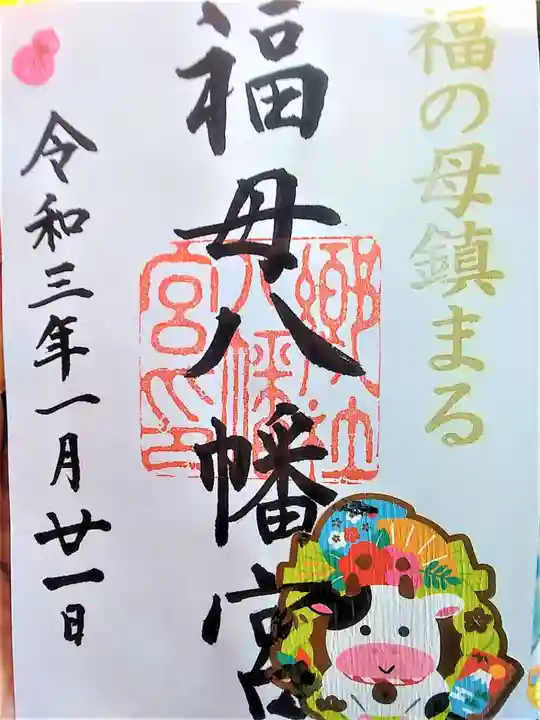 福の母鎮まる
福母八幡宮
郷社八幡宮印
令和三年一月廿一日